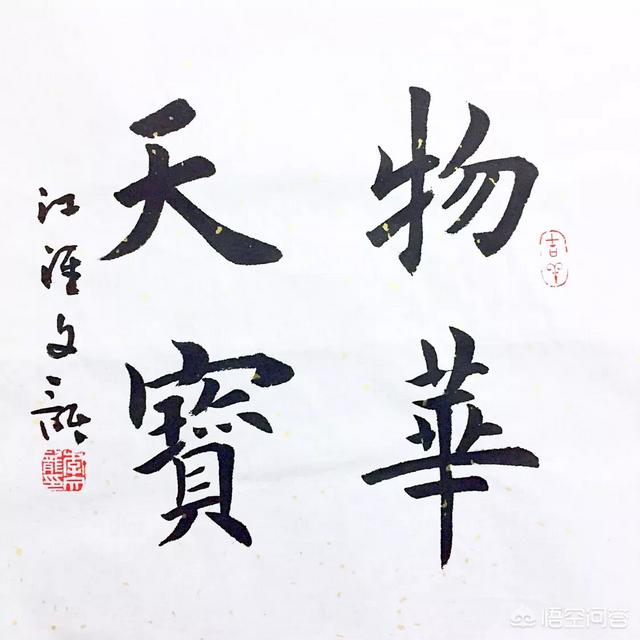 物華
天寶
江淮文龍
吉
悟空问答